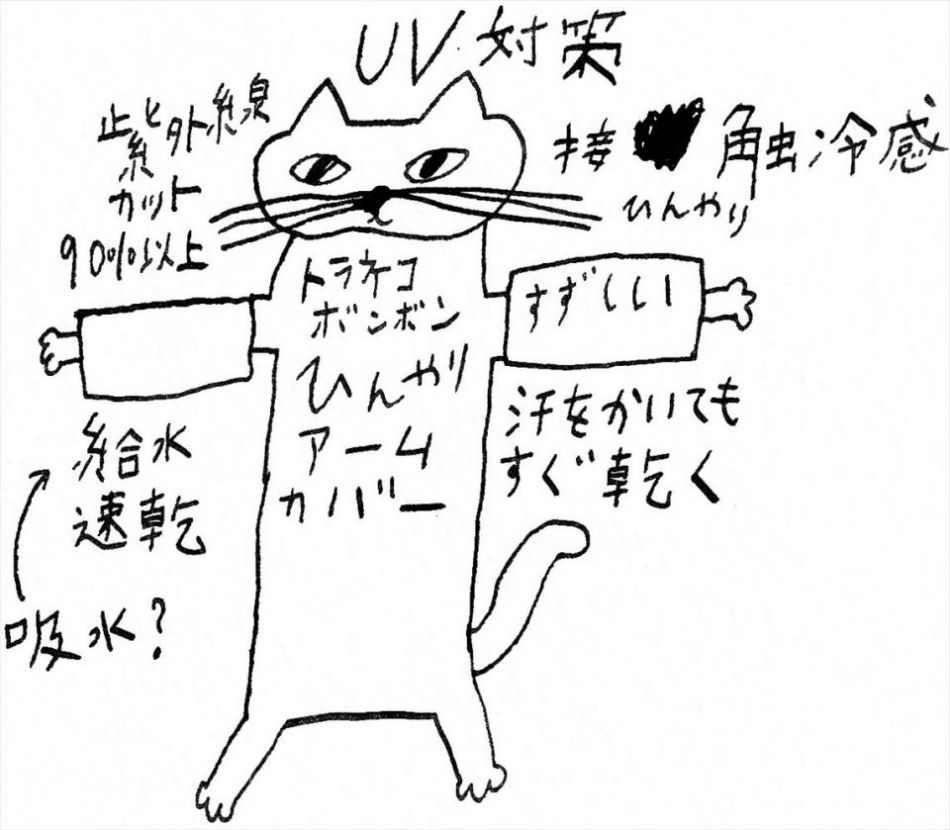 UV対策
紫外線
カット
90%以上
接触冷感
ひんやり
トラネコ
ボンボン
ひんやり
アーム
カバー
すずしい
給水
速乾
吸水?
汗をかいても
すぐ乾く